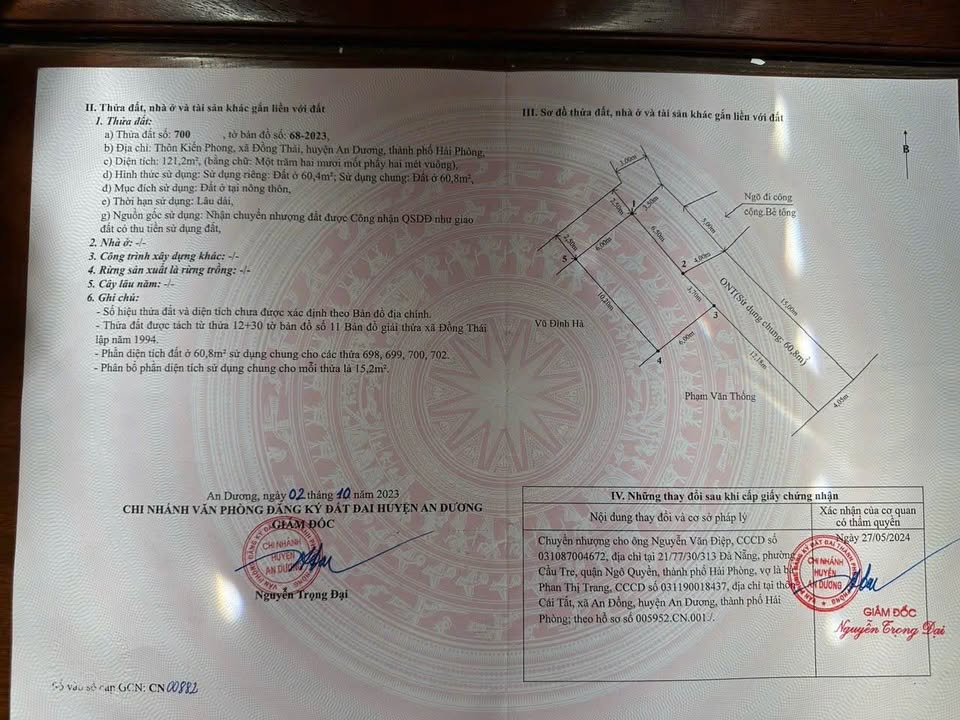 II. Thửa đất, nhà ở và tài sản khác gắn liền với đất
1. Thửa đất:
a) Thửa đất số: 700 , tờ bản đồ số: 68-2023,
b) Địa chỉ: Thôn Kiến Phong, xã Đồng Thái, huyện An Dương, thành phố Hải Phòng,
c) Diện tích: 121,2m², (bằng chữ: Một trăm hai mươi mốt phẩy hai mét vuông),
d) Hình thức sử dụng: Sử dụng riêng: Đất ở 60,4m²; Sử dụng chung: Đất ở 60,8m²,
đ) Mục đích sử dụng: Đất ở tại nông thôn,
e) Thời hạn sử dụng: Lâu dài,
g) Nguồn gốc sử dụng: Nhận chuyển nhượng đất được Công nhận QSDĐ như giao
đất có thu tiền sử dụng đất,
2. Nhà ở: -/-
3. Công trình xây dựng khác: -/-
4. Rừng sản xuất là rừng trồng: -/-
5. Cây lâu năm: -/-
6. Ghi chú:
- Số hiệu thửa đất và diện tích chưa được xác định theo Bản đồ địa chính.
- Thửa đất được tách từ thửa 12+30 tờ bản đồ số 11 Bản đồ giải thửa xã Đồng Thái
lập năm 1994.
- Phần diện tích đất ở 60,8m² sử dụng chung cho các thửa 698, 699, 700, 702.
- Phân bổ phần diện tích sử dụng chung cho mỗi thửa là 15,2m².
An Dương, ngày 02 tháng 10 năm 2023
CHI NHÁNH VĂN PHÒNG ĐĂNG KÝ ĐẤT ĐAI HUYỆN AN DƯƠNG
GIÁM ĐỐC
CHI NHÁNH
HUYỆN
AN DƯƠNG
Nguyễn Trọng Đại
Số vào sổ cấp GCN: CN 00882
III. Sơ đồ thửa đất, nhà ở và tài sản khác gắn liền với đất
B
3,00m
Ngõ đi công
cộng.Bê tông
2,50m
3,50m
1
5,00m
2,50m
6,00m
6,50m
5
2
4,00m
3,70m
ONT(Sử dụng chung: 60,8m²)
10,20m
3
15,00m
Vũ Đình Hà
6,00m
4
12,18m
Phạm Văn Thống
4,05m
IV. Những thay đổi sau khi cấp giấy chứng nhận
Nội dung thay đổi và cơ sở pháp lý
Xác nhận của cơ quan
có thẩm quyền
Chuyển nhượng cho ông Nguyễn Văn Diệp, CCCD số
031087004672, địa chỉ tại 21/77/30/313 Đà Nẵng, phường
Cầu Tre, quận Ngô Quyền, thành phố Hải Phòng, vợ là bà
Phan Thị Trang, CCCD số 031190018437, địa chỉ tại thôn
Cái Tắt, xã An Đồng, huyện An Dương, thành phố Hải
Phòng; theo hồ sơ số 005952.CN.001./.
Ngày 27/05/2024
CHI NHÁNH
HUYỆN
AN DƯƠNG
GIÁM ĐỐC
Nguyễn Trọng Đại